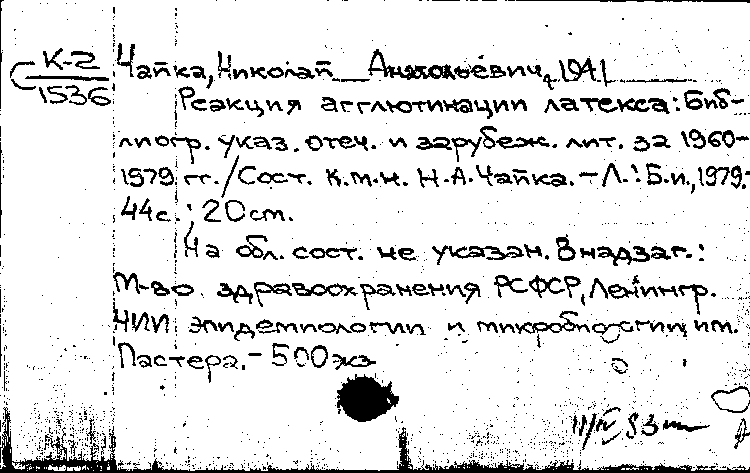 К-2
1536
Чайка, Николай Анатольевич, 1941
Реакция агглютинации латекса: Биб-
лиогр. указ. отеч. и зарубеж. лит. за 1960-
1979 гг. / Сост. к.м.н. Н.А. Чайка. - Л.: Б.и., 1979.-
44с.; 20см.
На обл. сост. не указан. В надзаг.:
М-во здравоохранения РСФСР, Ленингр.
НИИ эпидемиологии и микробиологии им.
Пастера. - 500 экз